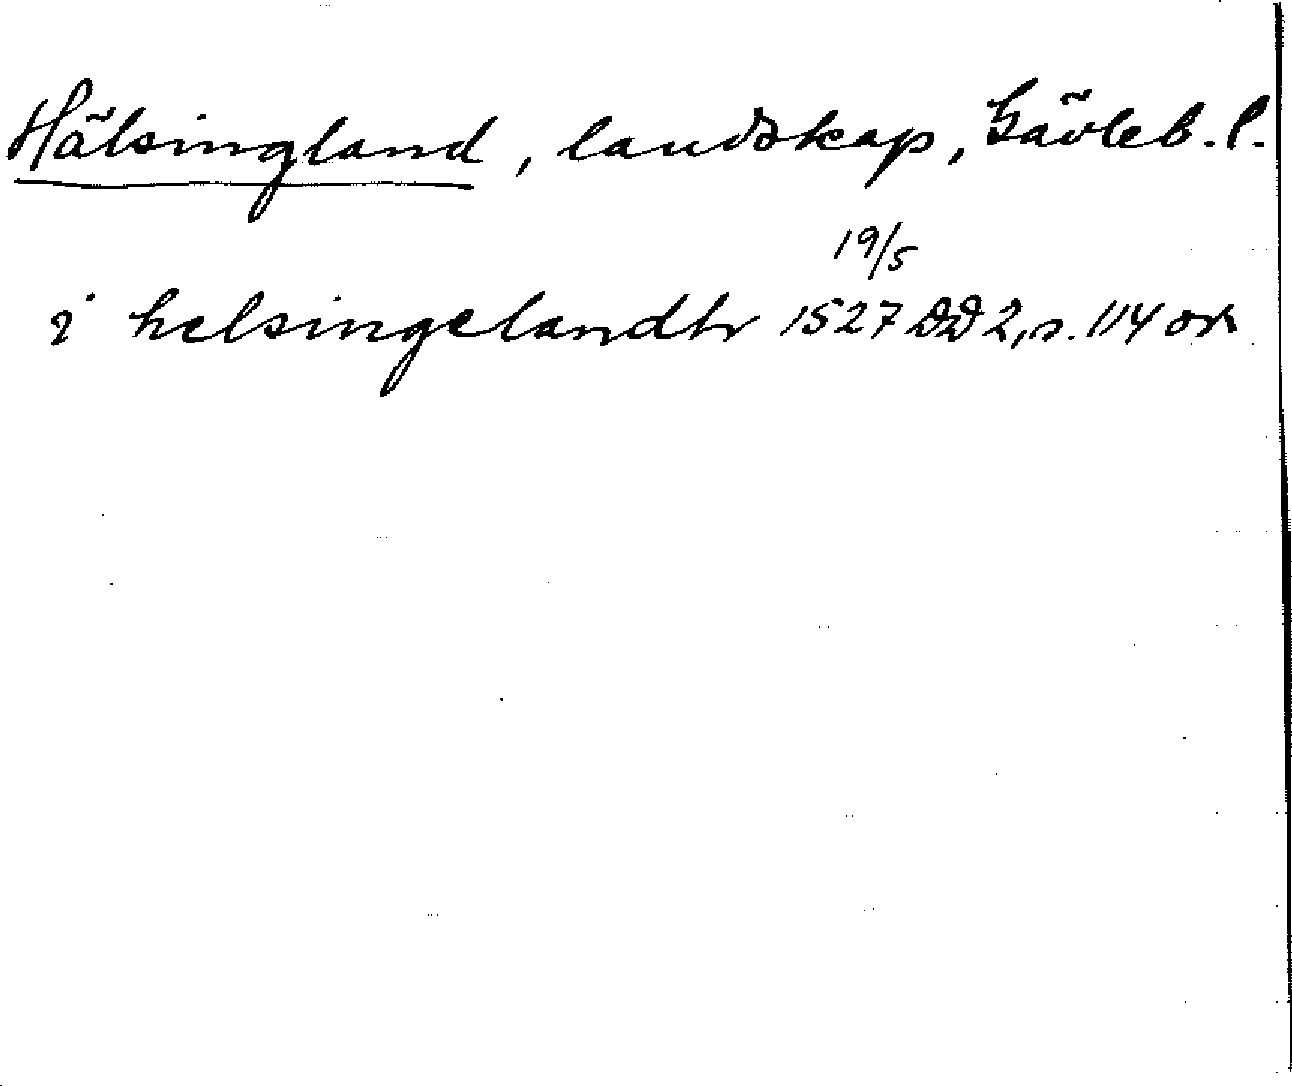 Hälsingland, landskap, Gävleb. l.
19/5
i helsingelandh 1527 DD 2, s. 114 or